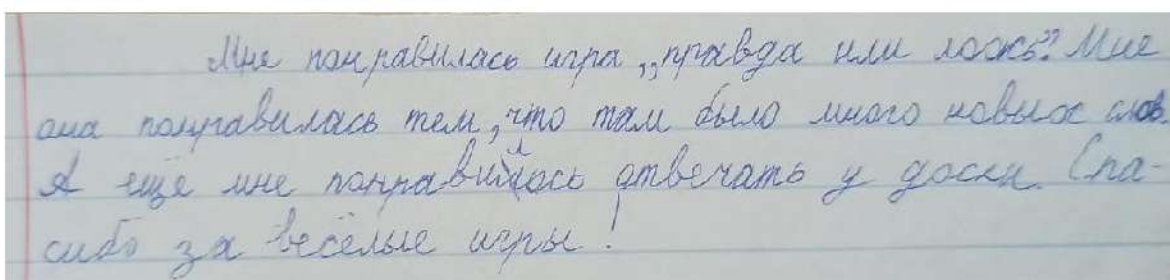 Мне понравилась игра „правда или ложь". Мне
она понравилась тем, что там было много новых слов.
А ещё мне понравилось отвечать у доски. Спа-
сибо за весёлые игры!